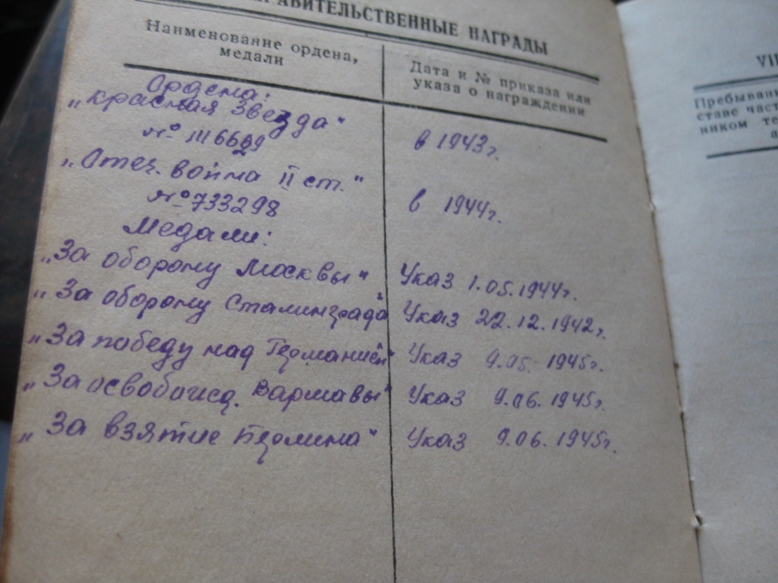 АВИТЕЛЬСТВЕННЫЕ НАГРАДЫ
Наименование ордена,
медали
Дата и № приказа или
указа о награждении
Ордена:
„Красная Звезда"
в 1943г.
„Отеч. война II ст."
№ 733298
в 1944г.
Медали:
„За оборону Москвы"
Указ 1.05.1944г.
„За оборону Сталинграда"
Указ 22.12.1942г.
„За победу над Германией"
Указ 9.05.1945г.
„За освобожд. Варшавы"
Указ 9.06.1945г.
„За взятие Берлина"
Указ 9.06.1945г.
VII
Пребывани
ставе част
ником те